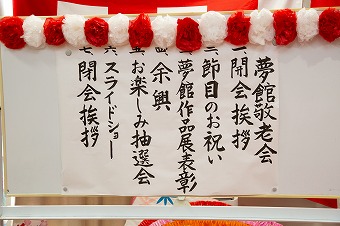 夢館敬老会
一、開会挨拶
二、節目のお祝い
三、夢館作品展表彰
四、余興
五、お楽しみ抽選会
六、スライドショー
七、閉会挨拶